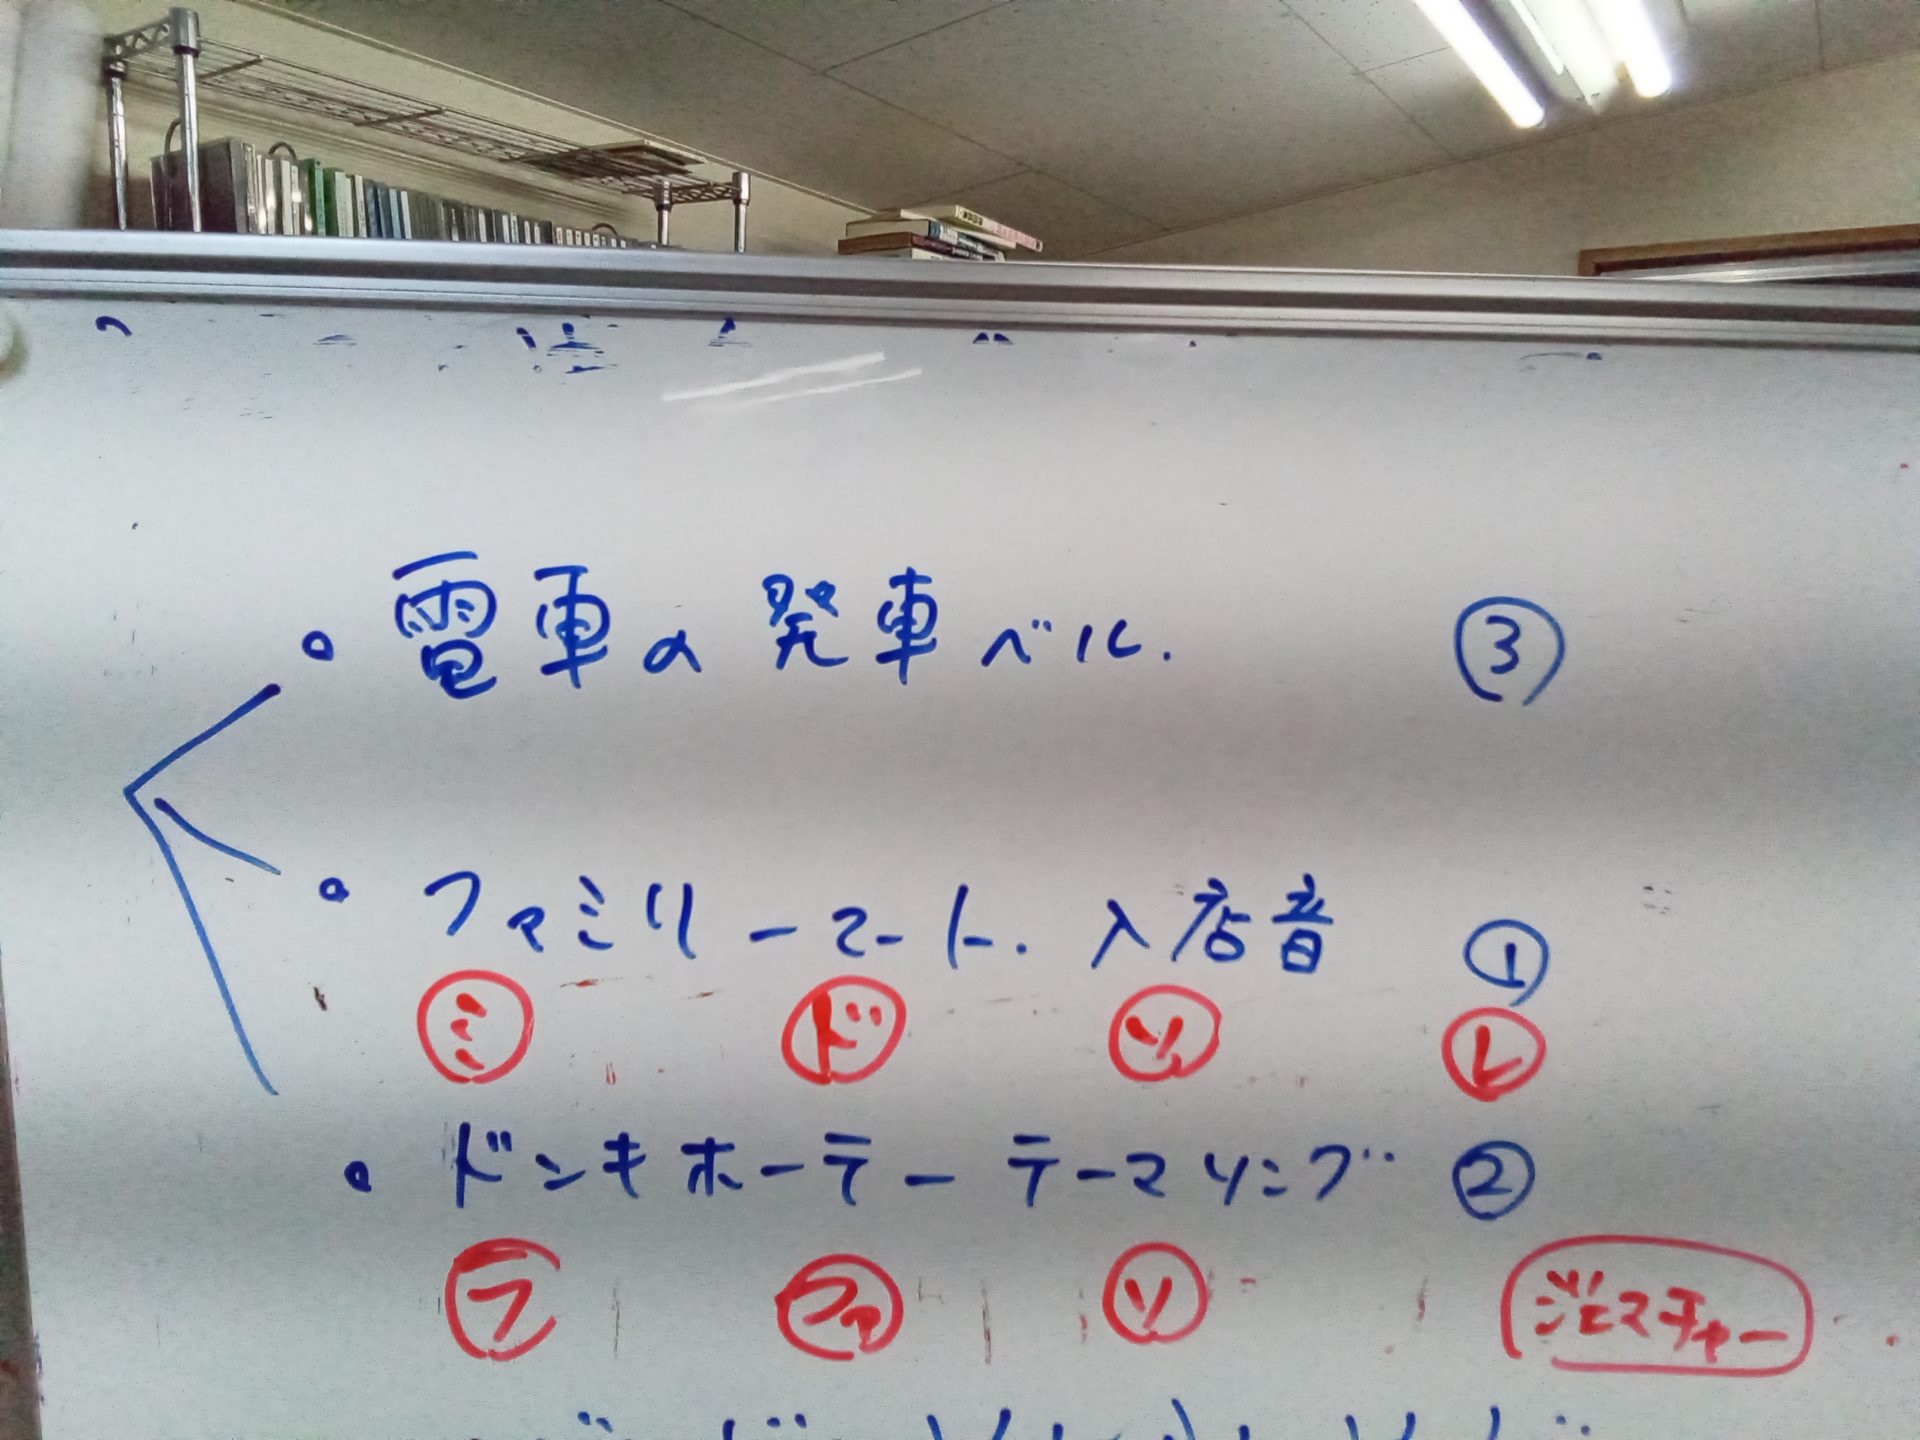 ・電車の発車ベル. ③
・ファミリーマート. 入店音 ①
ミ ド ソ レ
・ドンキホーテー テーマソング ②
ラ ファ ソ ジェスチャー